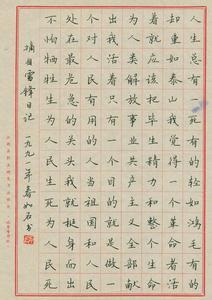 人生总有一死有的轻如鸿毛有的
却重如泰山我觉得一个革命者活
着就应该把毕生精力和整个生命
为人类解放事业共产主义全部献
出我活着只有一个目的就是做一
个对人民有用的人当祖国和人民
处在最危急的关头我就挺身而出
不怕牺牲生为人民生死为人民死
摘自雷锋日记 一九九一年春如石书